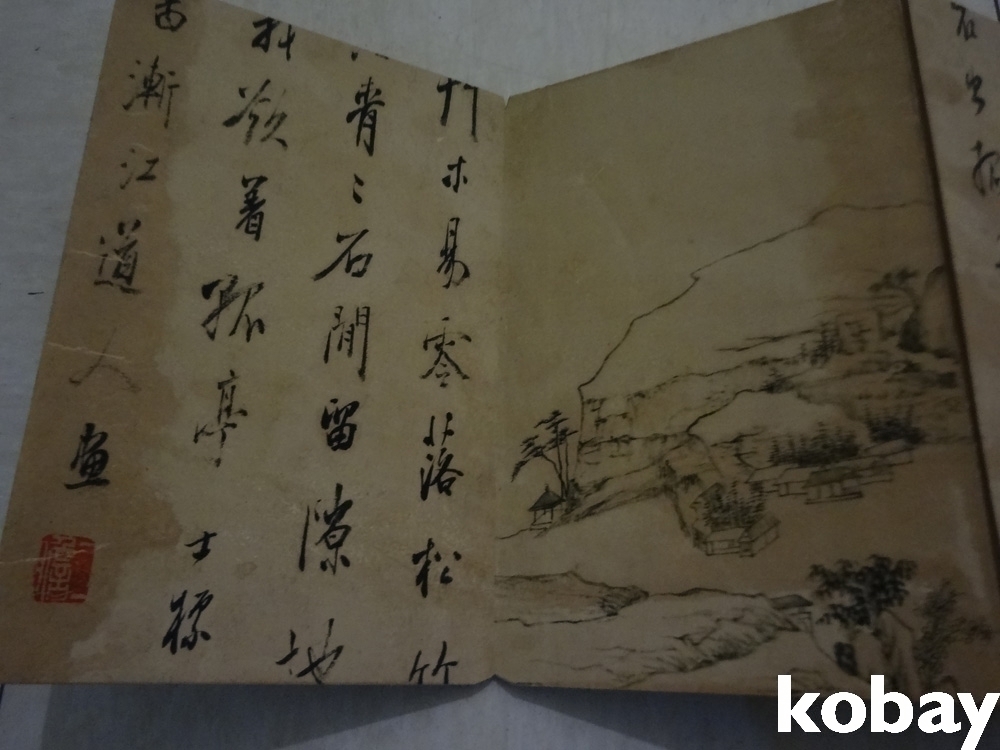 石
木易零落松竹
青〻石間留隙地
欲着孤亭 士標
漸江道人画
kobay